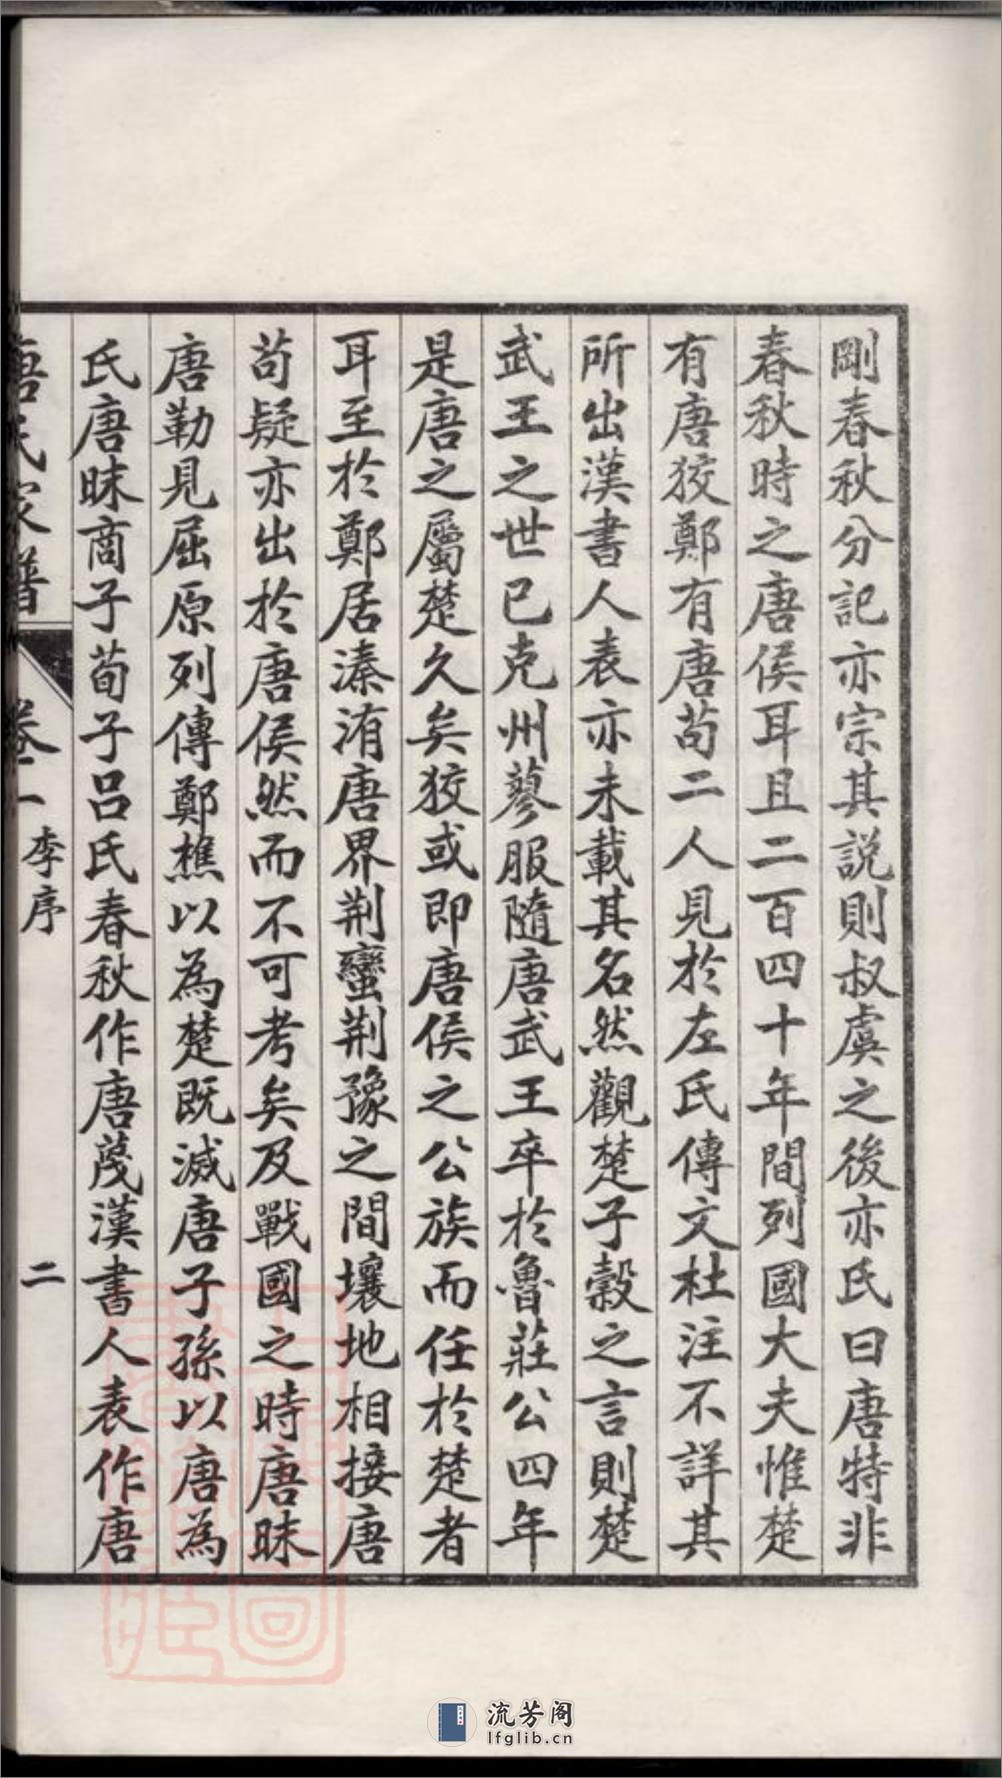 剛春秋分記亦宗其説則叔虞之後亦氏曰唐特非
春秋時之唐侯耳且二百四十年間列國大夫惟楚
有唐狡鄭有唐茍二人見於左氏傳文杜注不詳其
所出漢書人表亦未載其名然觀楚子穀之言則楚
武王之世已克州蓼服隨唐武王卒於魯莊公四年
是唐之屬楚久矣狡或即唐侯之公族而任於楚者
耳至於鄭居溱洧唐界荆蠻荆豫之間壤地相接唐
茍疑亦出於唐侯然而不可考矣及戰國之時唐昧
唐勒見屈原列傳鄭樵以為楚既滅唐子孫以唐為
氏唐昧商子荀子呂氏春秋作唐蔑漢書人表作唐
唐氏家譜
卷一
李序
二
流芳阁
lfglib.cn